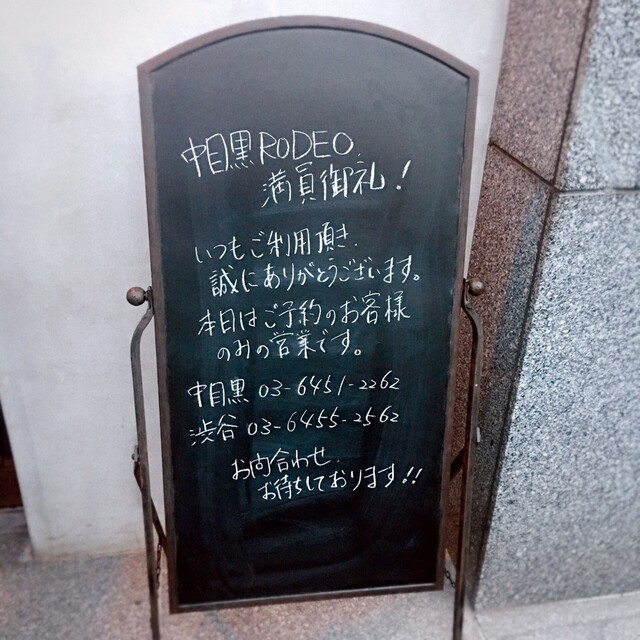 中目黒RODEO.
満員御礼!
いつもご利用頂き.
誠にありがとうございます。
本日はご予約のお客様
のみの営業です。
中目黒 03-6451-2262
渋谷 03-6455-2562
お向合わせ.
お待ちしております!!